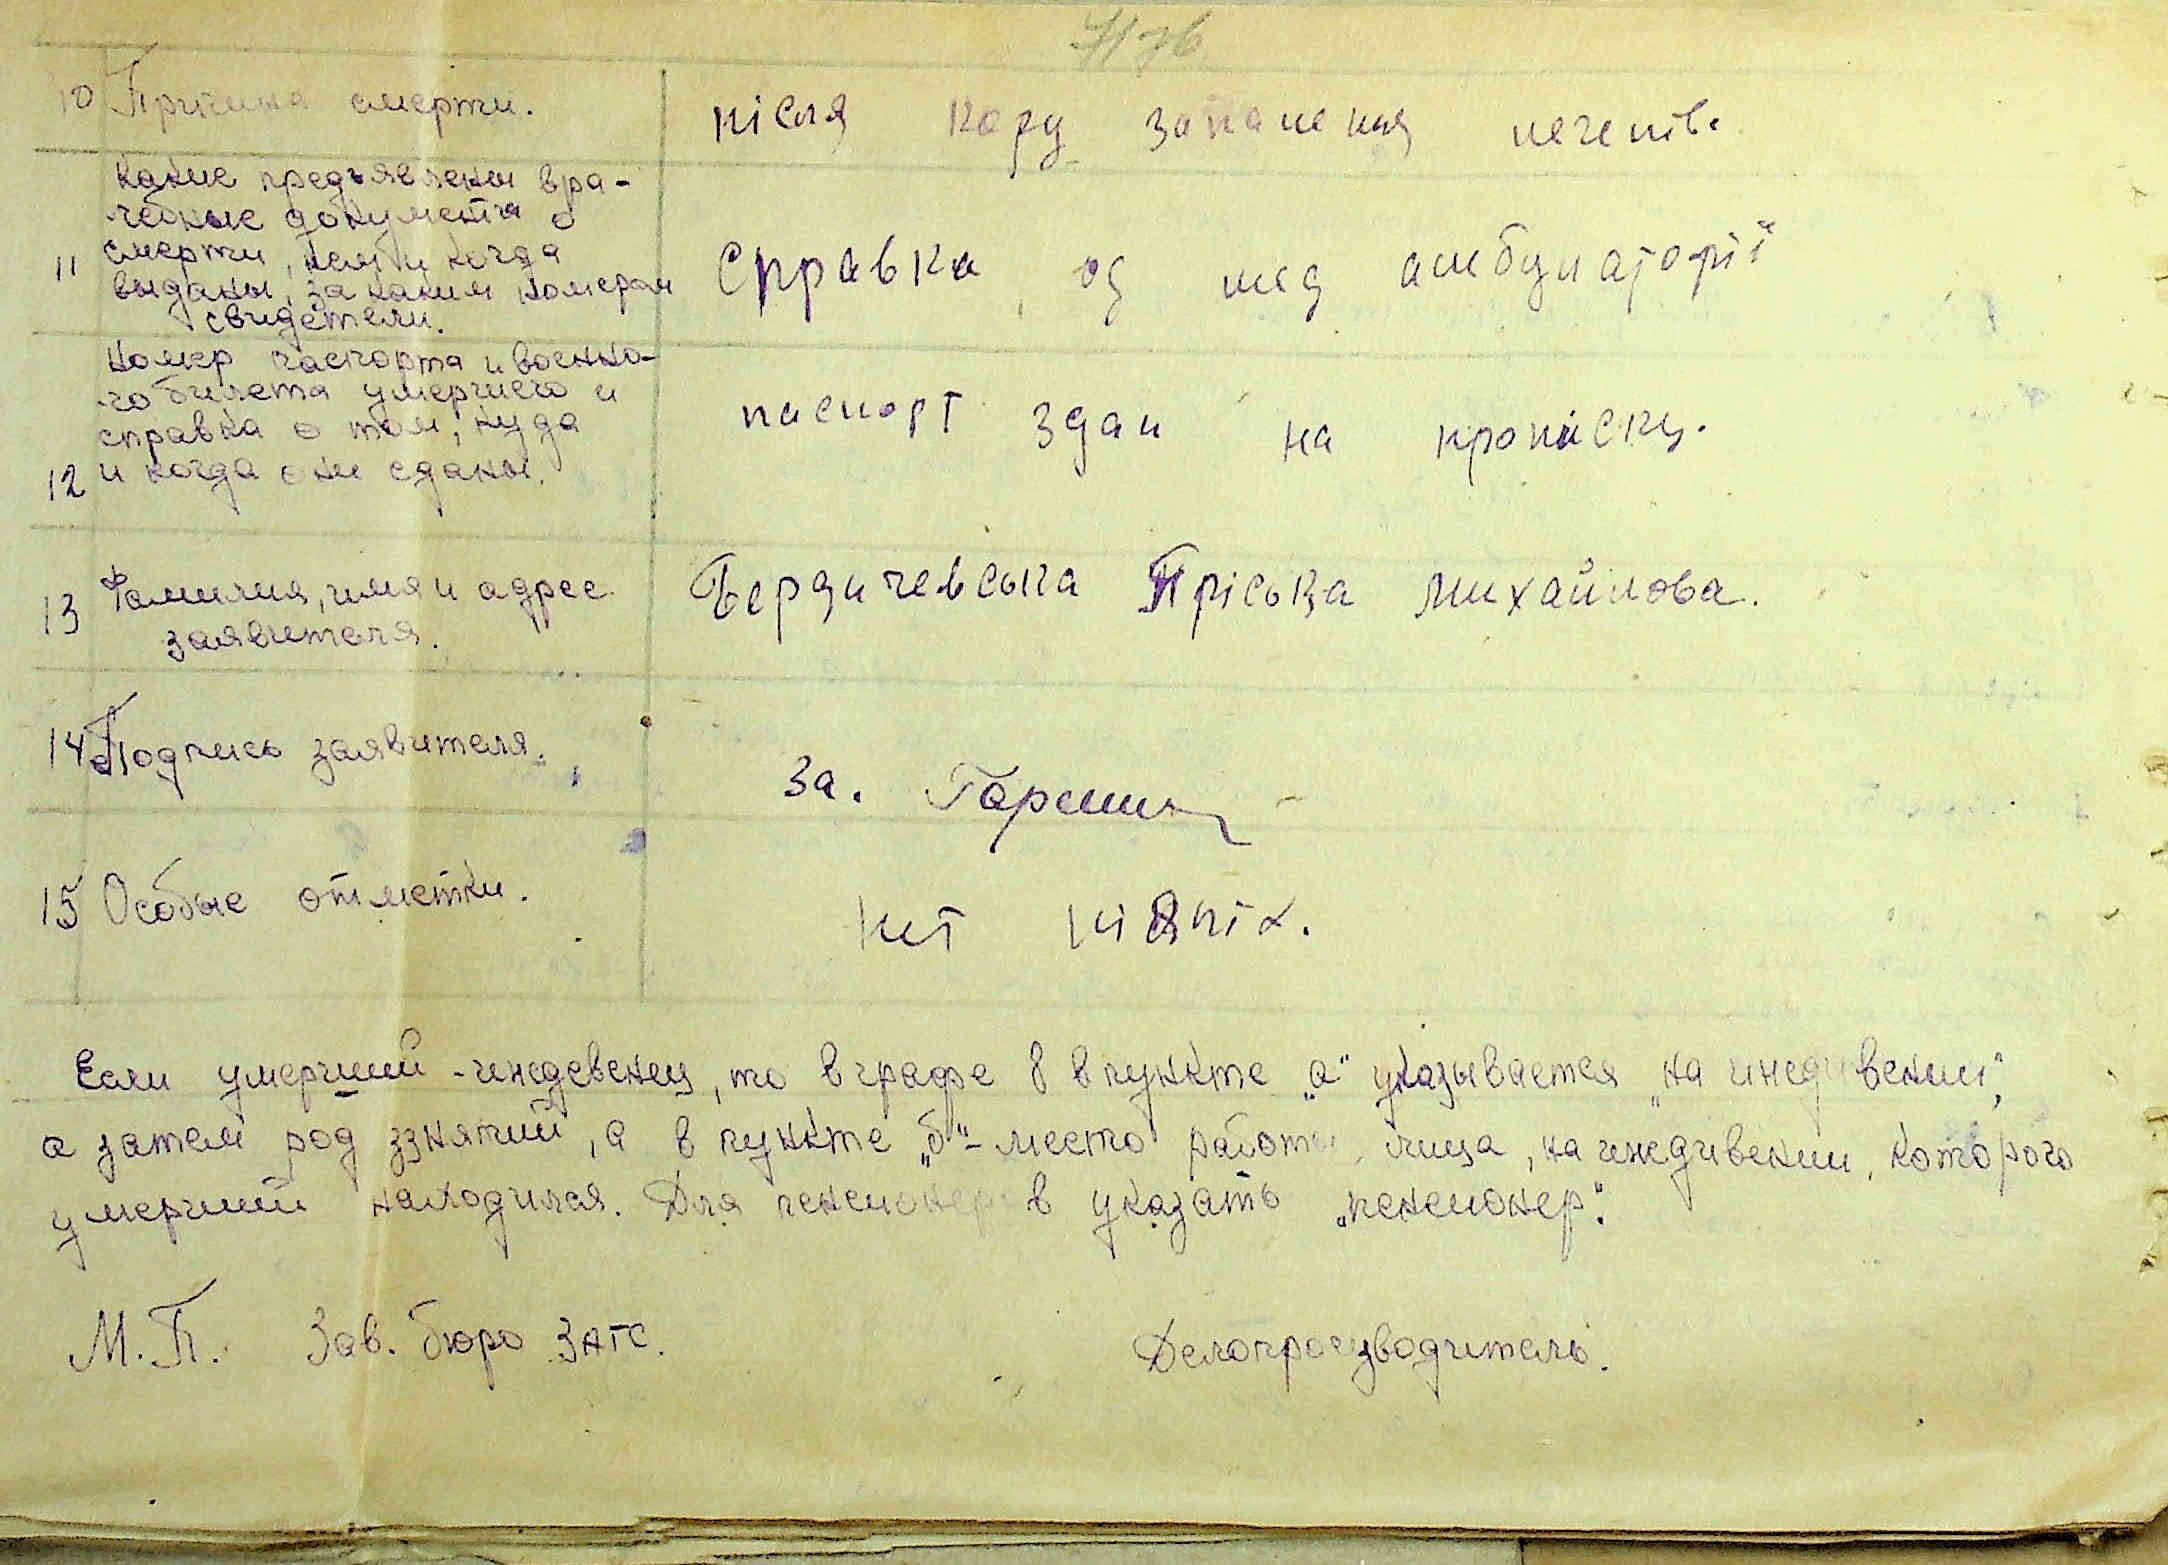 10 Причина смерти.
після кору запаленя легенів.
какие предъявлены вра-
чебные документы о
11 смерти, кем и когда
выданы, за каким номером
свидетели.
Справка, од мед амбулаторії
номер паспорта и военно-
го билета умершего и
справка о том, куда
12 и когда они сданы.
паспорт здан на прописку.
13 Фамилия, имя и адрес
заявителя.
Бердичевська Пріська Михайлова.
14 Подпись заявителя.
За.
15 Особые отметки.
ніяких.
Если умерший - иждевенец, то в графе 8 в пункте „а“ указывается „на иждивении“,
а затем род занятий, а в пункте „б“ - место работы лица, на иждивении, которого
умерший находился. Для пенсионеров указать „пенсионер“.
М.П. Зав. бюро ЗАГС. Делопроизводитель.